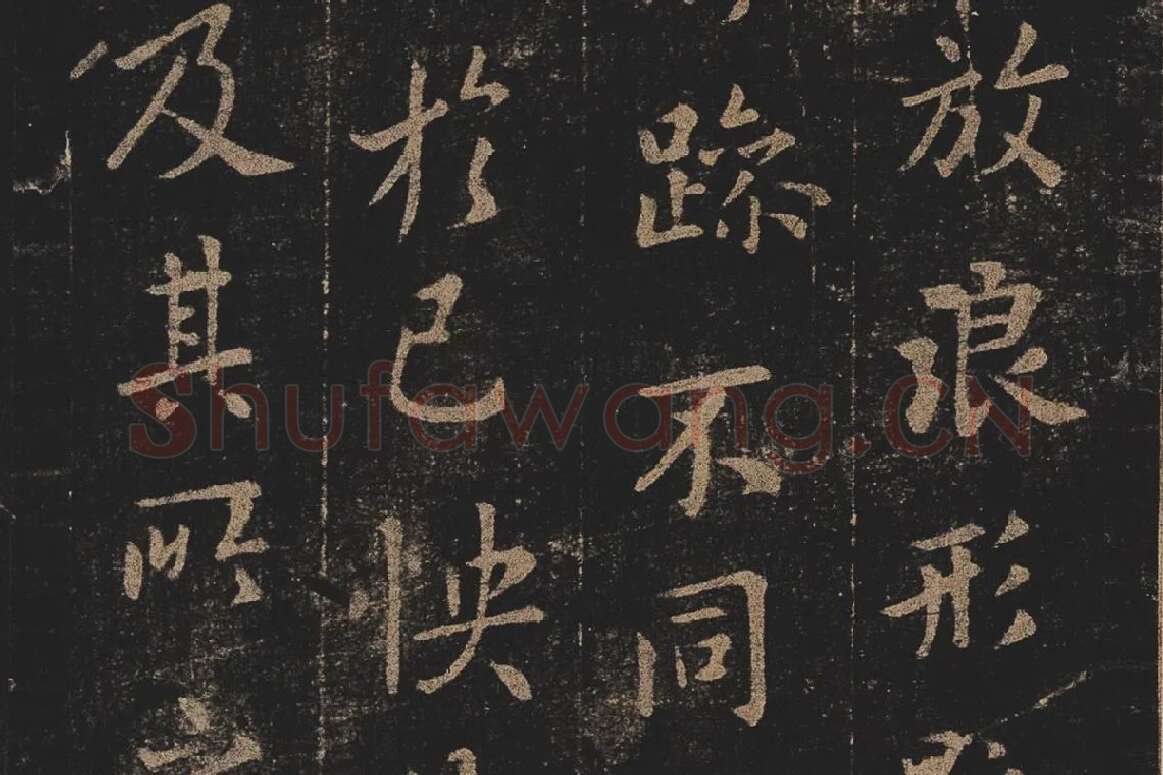 放浪形
躁不同
於己怏
及其所
Shufawang.CN